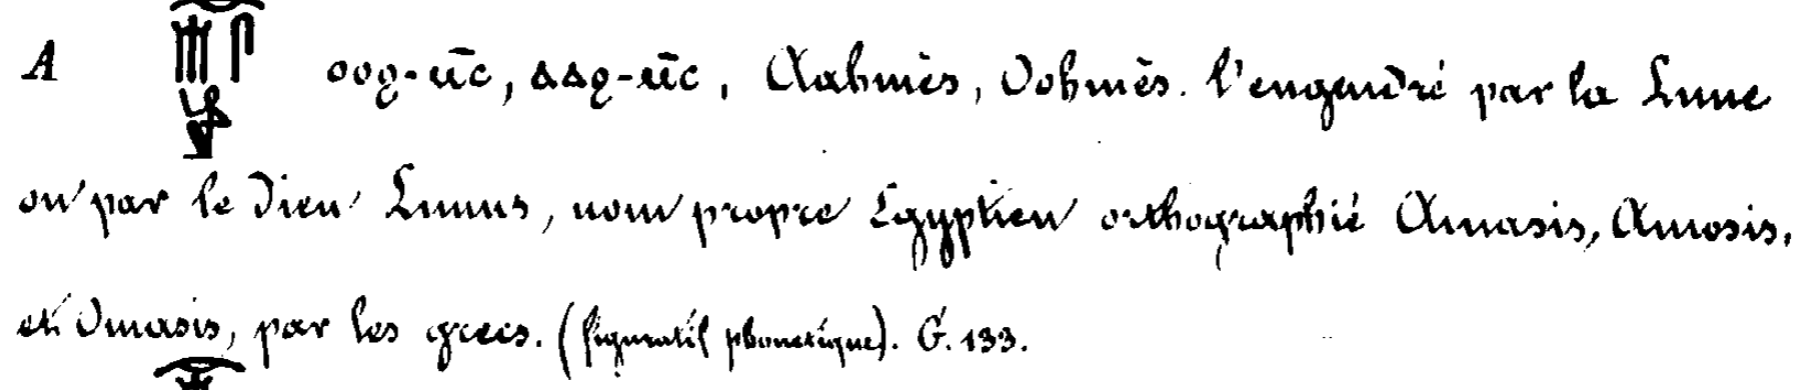 A 𓇹𓄟𓋴𓀀 ⲟⲟϩ-ⲙ̄ⲥ, ⲁⲁϩ-ⲙ̄ⲥ, Aahmès, Oohmès. l'engendré par la Lune
ou par le Dieu Lunus, nom propre Égyptien orthographié Amasis, Amosis,
et Omasis, par les grecs. (figuratif phonétique). G. 133.